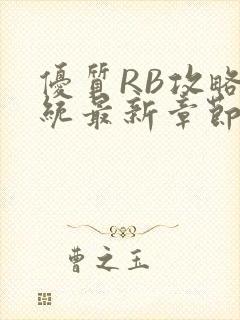 優質RB攻略
統最新章節
曹之玉